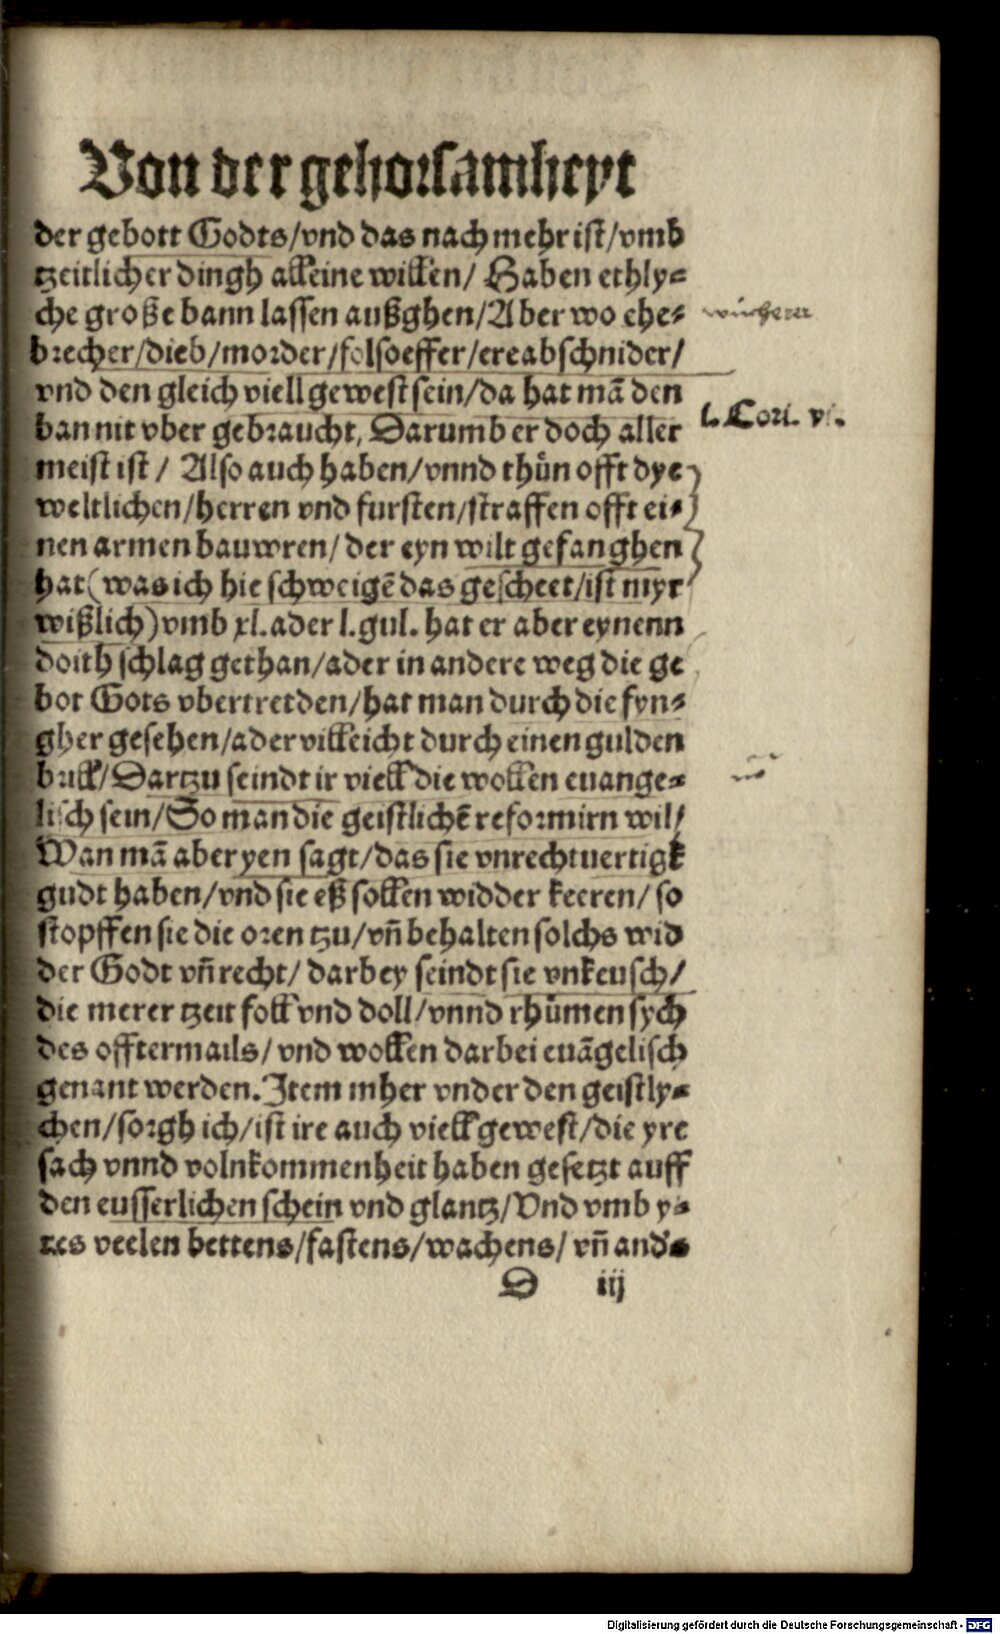 Von der gehorsamheyt
der gebott Godts/vnd das nach mehr ist/vmb
tzeitlicher dingh alleine willen/ Haben ethly⸗
che große bann lassen außghen/Aber wo ehe⸗
wucherer
brecher/dieb/morder/folsoeffer/ereabschnider/
vnd den gleich viell gewest sein/da hat mã den
ban nit vber gebraucht, Darumb er doch aller
1. Cori. vi.
meist ist/ Also auch haben/vnnd thůn offt dye
weltlichen/herren vnd fursten/straffen offt ei⸗
nen armen bauwren/ der eyn wilt gefanghen
hat(was ich hie schweigẽ das gescheet/ist myr
wißlich)vmb xl.ader l.gul. hat er aber eynenn
doith schlag gethan/ader in andere weg die ge
bot Gots vbertretden/hat man durch die fyn⸗
gher gesehen/ader villeicht durch einen gulden
brill/Dartzu seindt ir viell die wollen euange⸗
lisch sein/So man die geistlichẽ reformirn wil/
Wan mã aber yen sagt/das sie vnrechtuertigk
gudt haben/vnd sie eß sollen widder keeren/ so
stopffen sie die oren tzu/vñ behalten solchs wid
der Godt vñ recht/ darbey seindt sie vnkeusch/
die merer tzeit foll vnd doll/vnnd rhůmen sych
des offtermails/ vnd wollen darbei euãgelisch
genant werden. Item mher vnder den geistly⸗
chen/sorgh ich/ist ire auch viell gewest/die yre
sach vnnd volnkommenheit haben gesetzt auff
den eusserlichen schein vnd glantz/Vnd vmb y⸗
res veelen bettens/fastens/wachens/ vñ and's
D iij
Digitalisierung gefördert durch die Deutsche Forschungsgemeinschaft - DFG